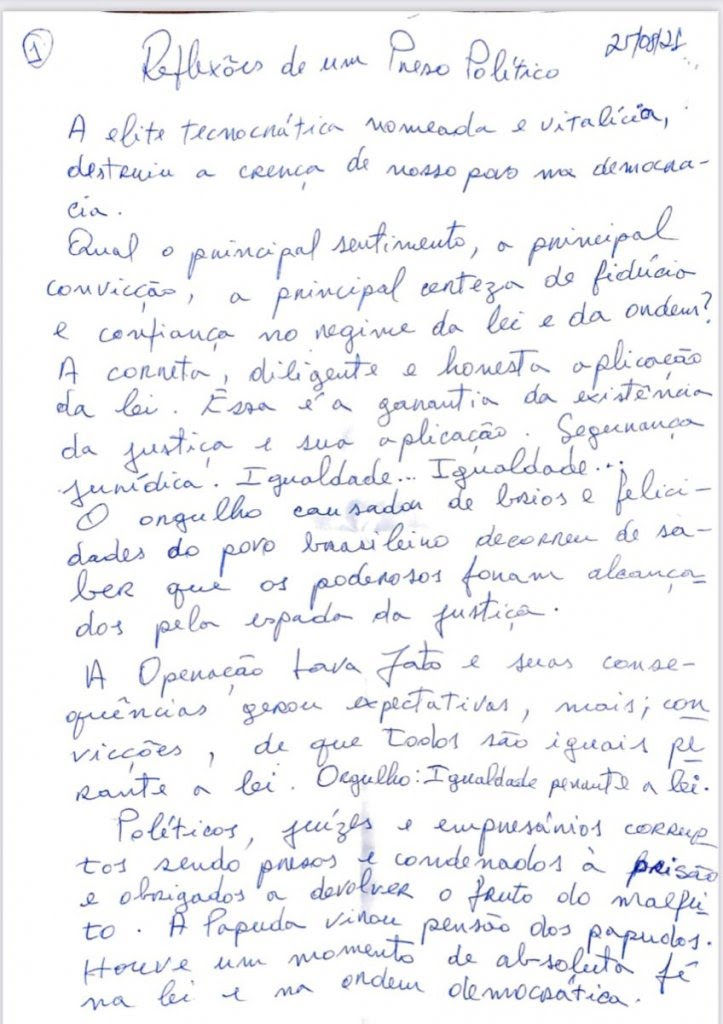 1
Reflexões de um Preso Político
25/08/21
A elite tecnocrática nomeada e vitalícia,
destruiu a crença de nosso povo na democra-
cia.
Qual o principal sentimento, a principal
convicção, a principal certeza de fidúcia
e confiança no regime da lei e da ordem?
A correta, diligente e honesta aplicação
da lei. Essa é a garantia da existência
da justiça e sua aplicação. Segurança
jurídica. Igualdade... Igualdade...
O orgulho causador de brios e felici-
dades do povo brasileiro decorreu de sa-
ber que os poderosos foram alcança-
dos pela espada da justiça.
A Operação Lava Jato e suas conse-
quências gerou expectativas, mais; con
vicções, de que todos são iguais pe
rante a lei. Orgulho: Igualdade perante a lei.
Políticos, juízes e empresários corrup
tos sendo presos e condenados à prisão
e obrigados a devolver o fruto do malfei
to. A Papuda virou pensão dos papudos.
Houve um momento de absoluta fé
na lei e na ordem democrática.